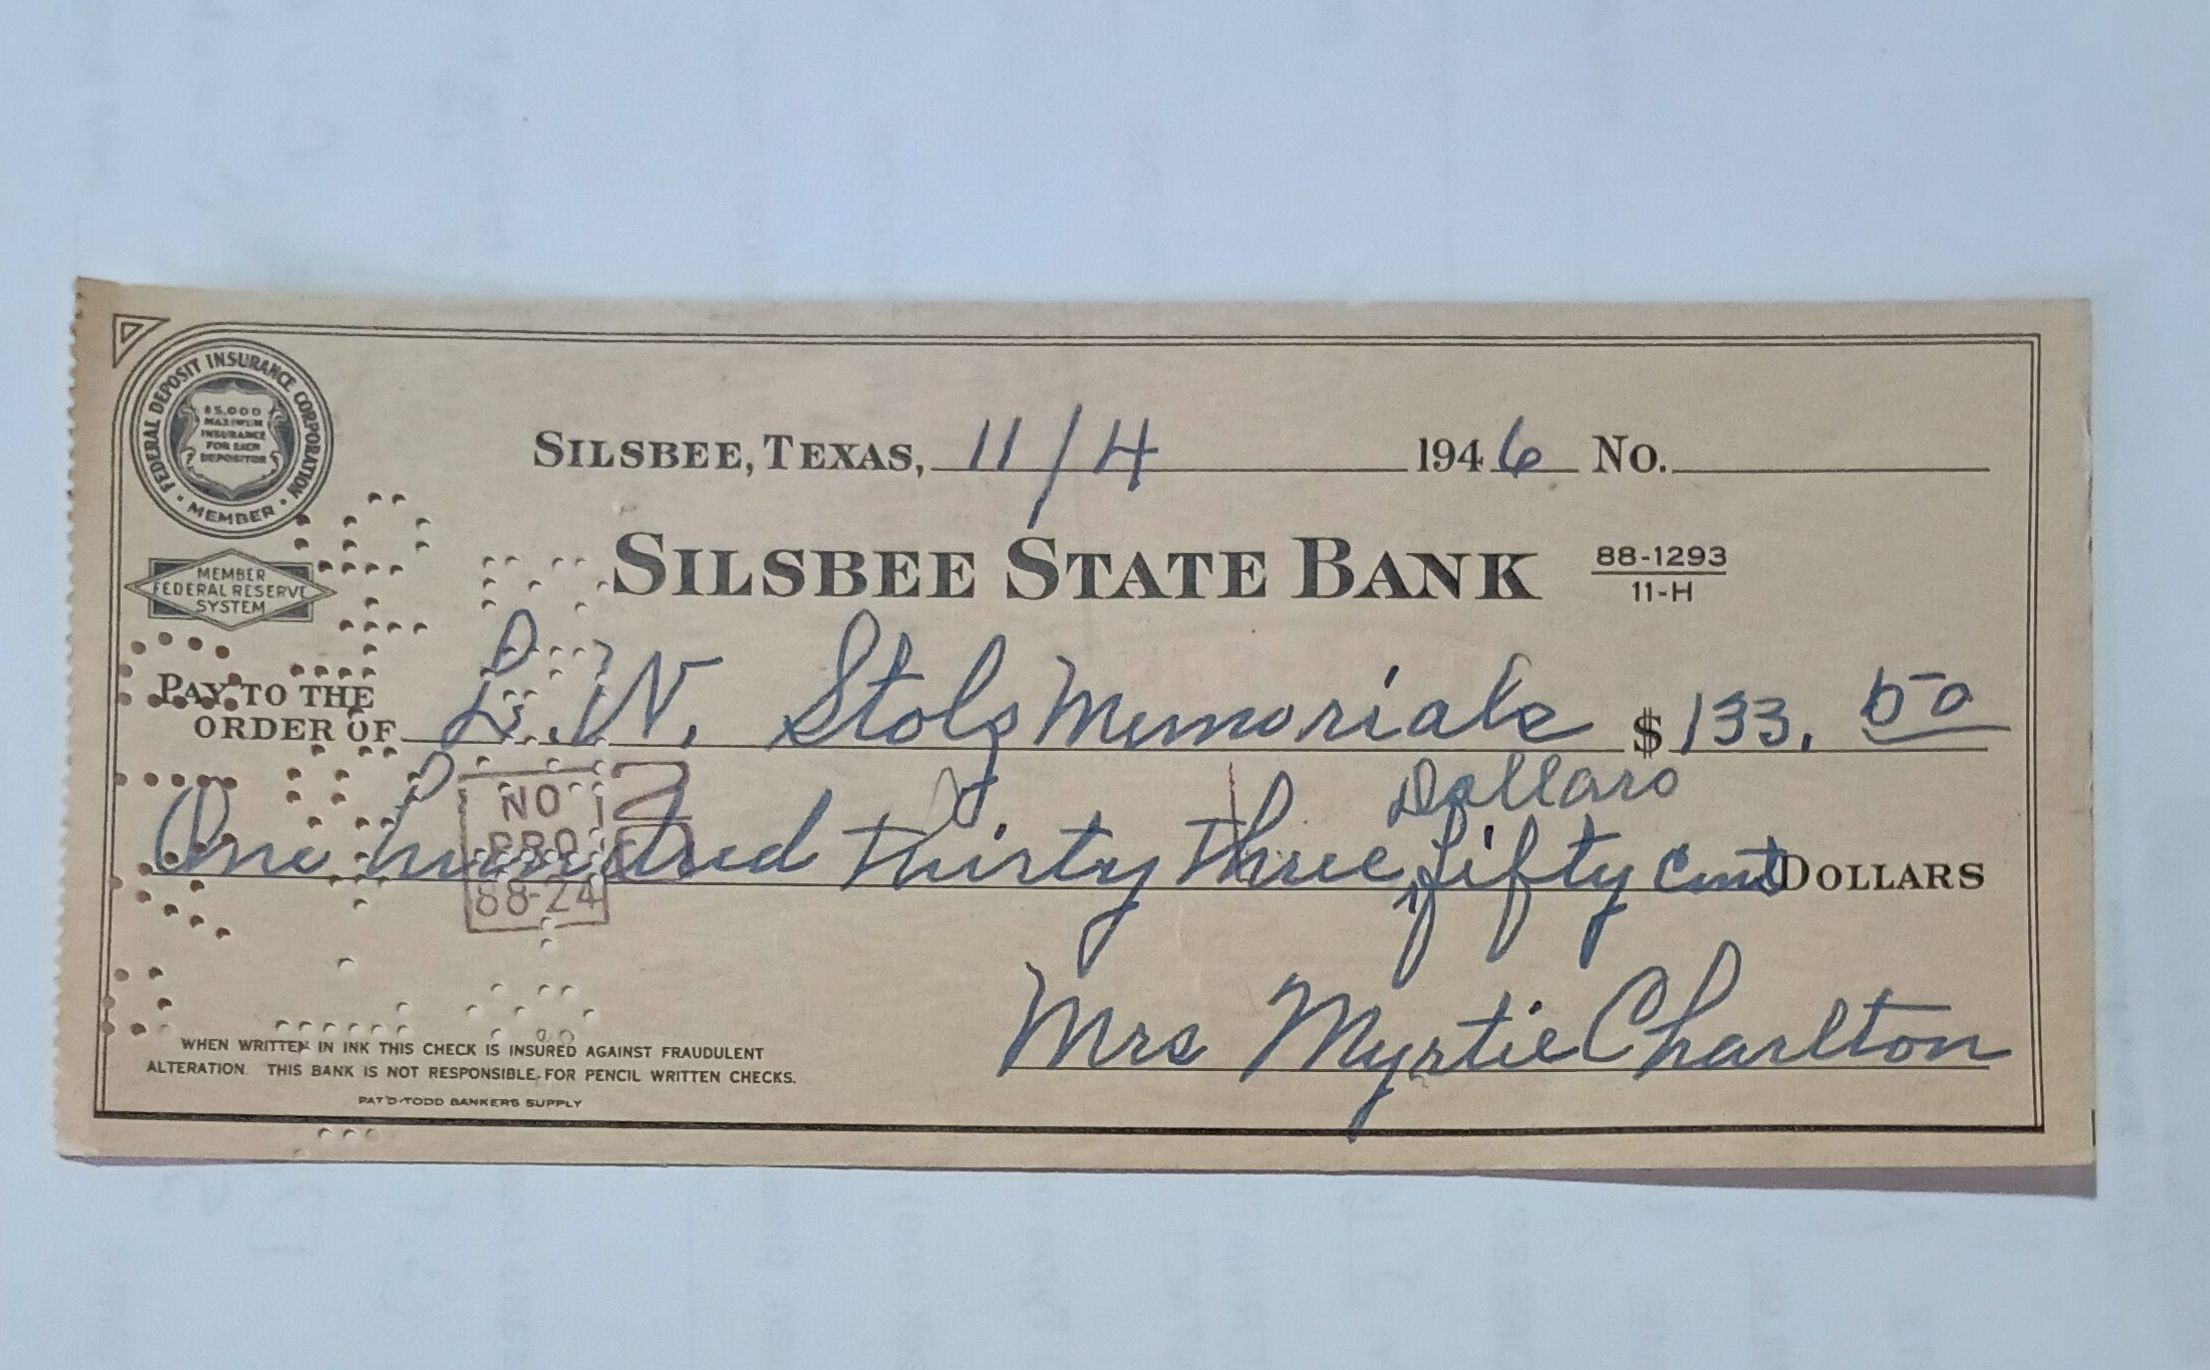 FEDERAL DEPOSIT INSURANCE CORPORATION
$5,000
MAXIMUM
INSURANCE
FOR EACH
DEPOSITOR
• MEMBER •
SILSBEE, TEXAS, 11/4 1946 No.
SILSBEE STATE BANK 88-1293
11-H
MEMBER
FEDERAL RESERVE
SYSTEM
PAY TO THE
ORDER OF L.W. Stolz Memorials $ 133. 50
Dollars
One hundred thirty three, fifty cents DOLLARS
NO
PRO
88-24
Mrs Myrtie Charlton
WHEN WRITTEN IN INK THIS CHECK IS INSURED AGAINST FRAUDULENT
ALTERATION. THIS BANK IS NOT RESPONSIBLE FOR PENCIL WRITTEN CHECKS.
PAT'D-TODD BANKERS SUPPLY